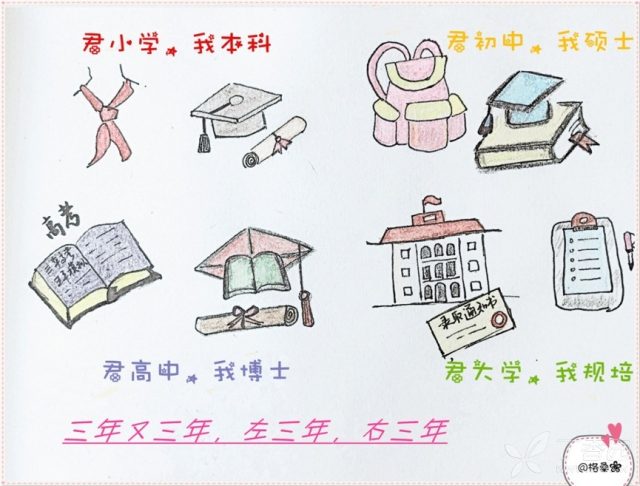 君小学，我本科
君初中，我硕士
高考
录取通知书
君高中，我博士
君大学，我规培
三年又三年，左三年，右三年
@格桑